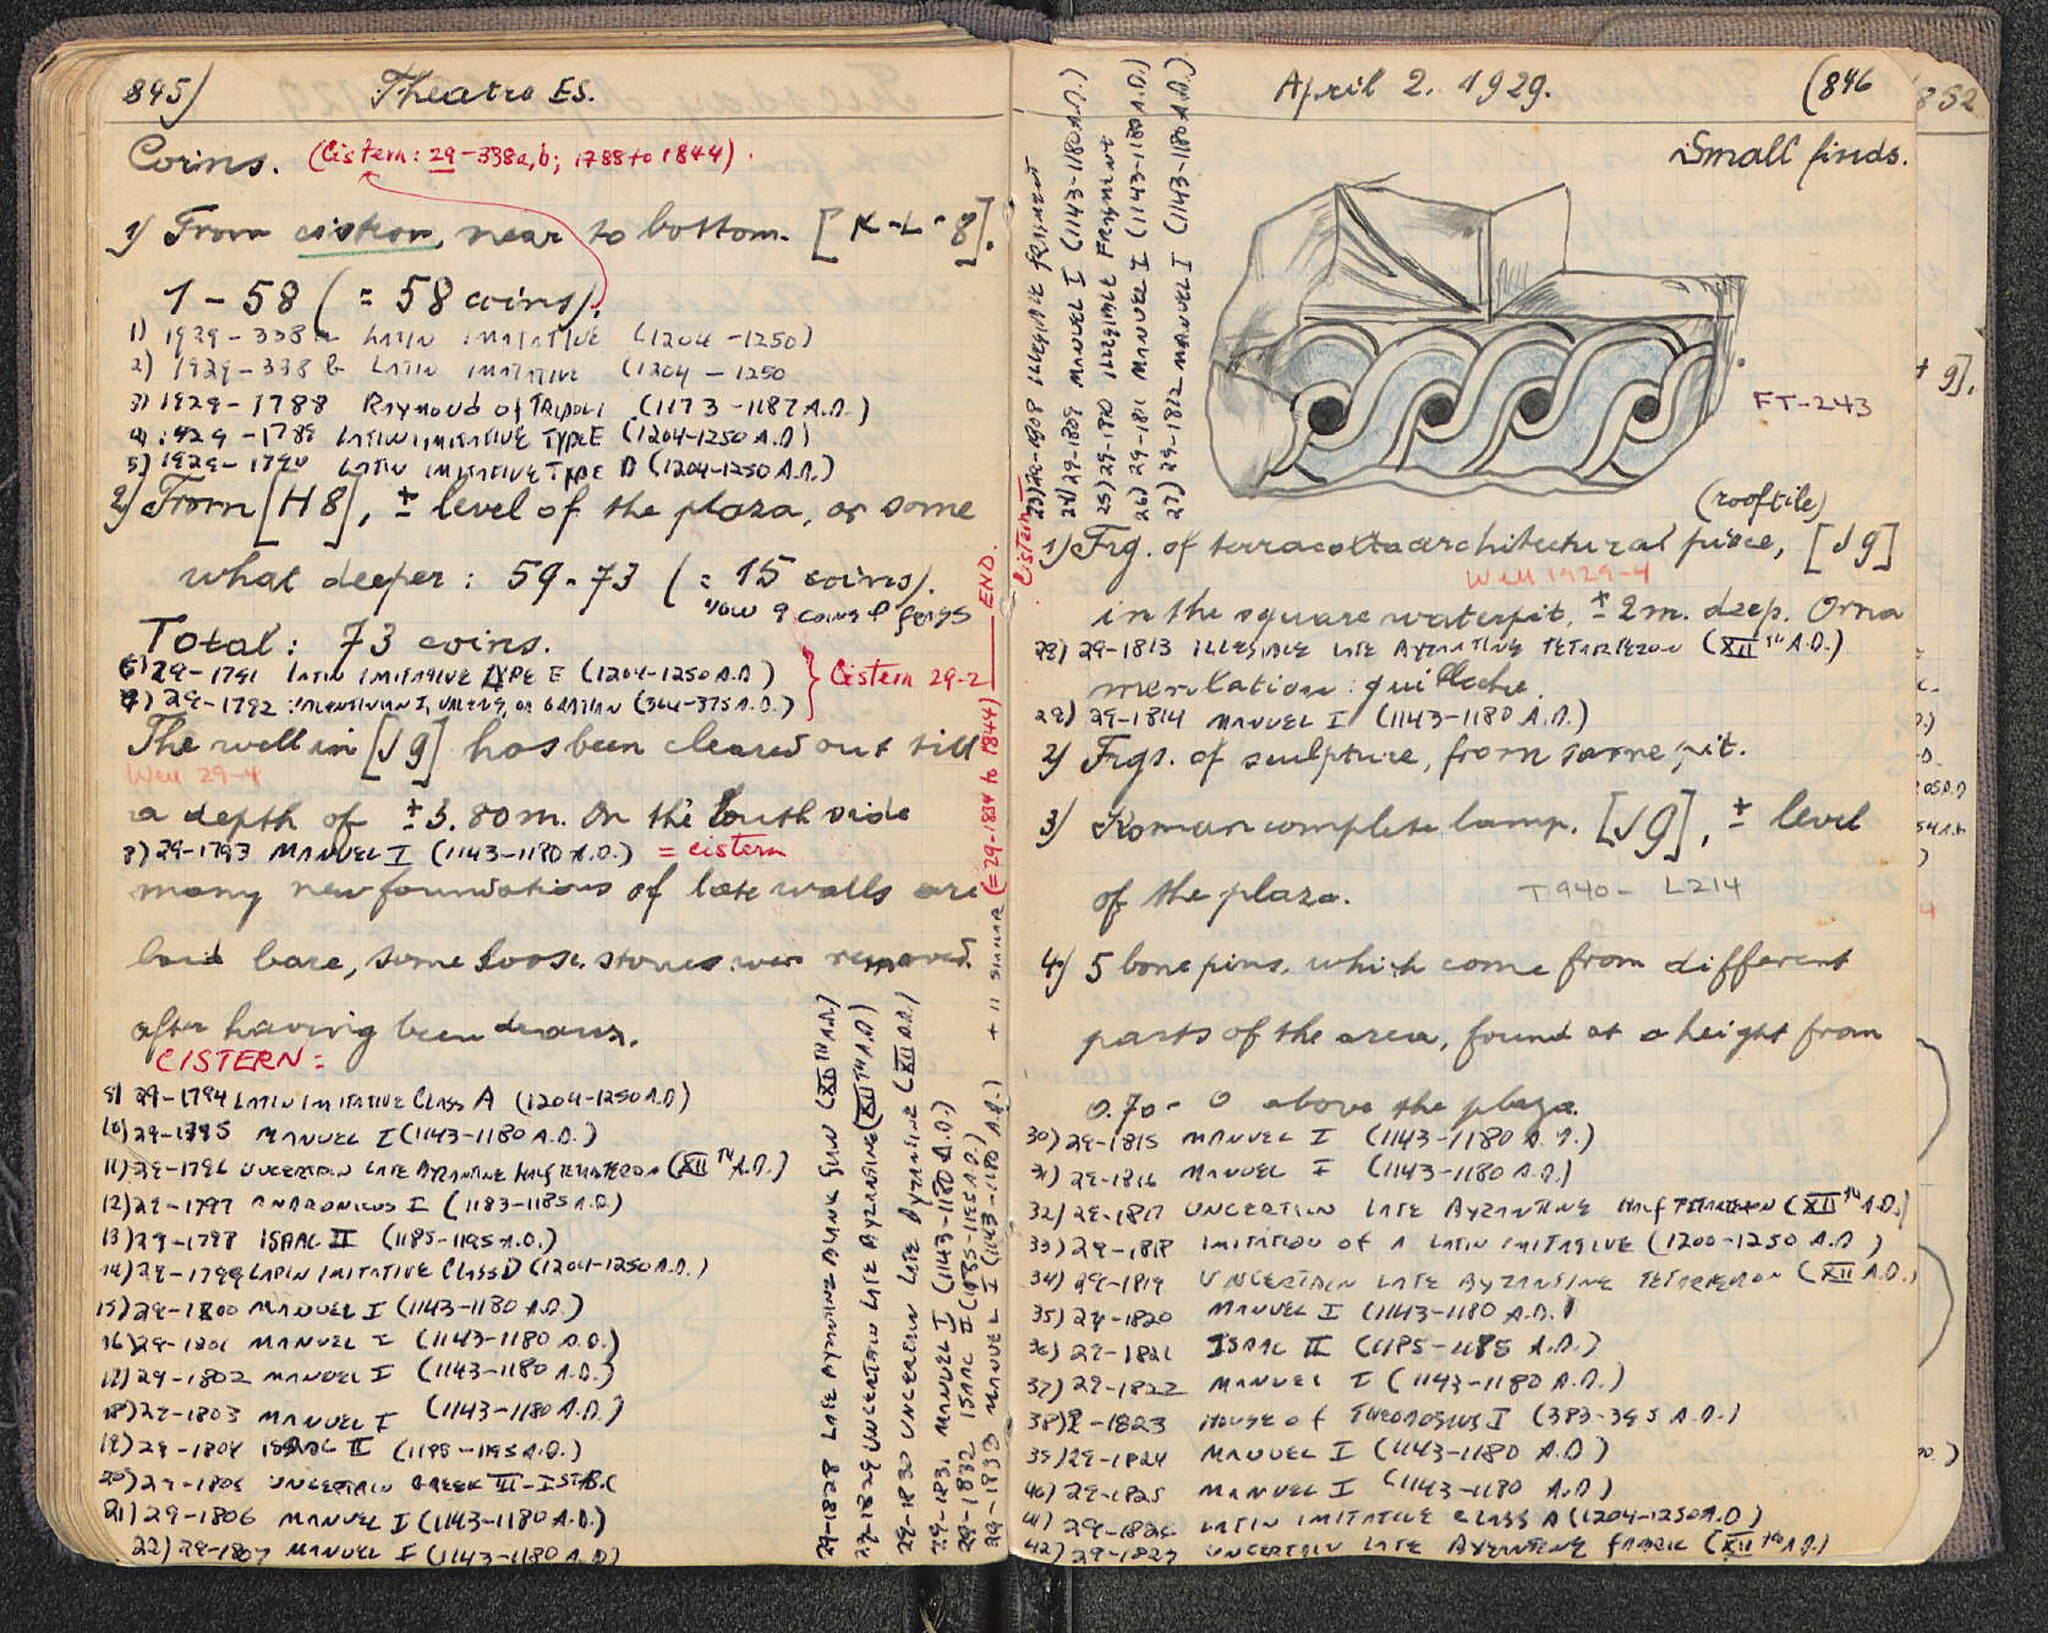 845)
Theatre ES.
Coins. (Cistern: 29-338a,b; 1788 to 1844).
1) From cistern, near to bottom. [K-L-8].
1-58 (= 58 coins).
1) 1929-338 a LATIN IMITATIVE (1204-1250)
2) 1929-338 b LATIN IMITATIVE (1204-1250
3) 1929-1788 Raymond of Tripoli (1173-1187 A.D.)
4) 1929-1789 LATIN IMITATIVE TYPE E (1204-1250 A.D)
5) 1929-1790 LATIN IMITATIVE TYPE D (1204-1250 A.D.)
2) From [H8], ± level of the plaza, or some
what deeper: 59-73 (= 15 coins).
now 9 coins & frgs
Total: 73 coins.
6) 29-1791 LATIN IMITATIVE TYPE E (1204-1250 A.D)
7) 29-1792 VALENTINIAN I, VALENS, OR GRATIAN (364-375 A.D.)
} Cistern 29-2
The well in [J9] has been cleared out till
Well 29-4
a depth of ±3.80m. On the South side
8) 29-1793 MANUEL I (1143-1180 A.D.) = cistern
many new foundations of late walls are
laid bare, some loose stones were removed
after having been drawn.
CISTERN:
9) 29-1794 LATIN IMITATIVE CLASS A (1204-1250 A.D)
10) 29-1795 MANUEL I (1143-1180 A.D.)
11) 29-1796 UNCERTAIN LATE BYZANTINE HALF TETARTERON (XII TH A.D.)
12) 29-1797 ANDRONICUS I (1183-1185 A.D.)
13) 29-1798 ISAAC II (1185-1195 A.D.)
14) 29-1799 LATIN IMITATIVE CLASS D (1204-1250 A.D.)
15) 29-1800 MANUEL I (1143-1180 A.D.)
16) 29-1801 MANUEL I (1143-1180 A.D.)
17) 29-1802 MANUEL I (1143-1180 A.D.)
18) 29-1803 MANUEL I (1143-1180 A.D.)
19) 29-1804 ISAAC II (1185-1195 A.D.)
20) 29-1805 UNCERTAIN GREEK III-I ST B.C
21) 29-1806 MANUEL I (1143-1180 A.D.)
22) 29-1807 MANUEL I (1143-1180 A.D)
29-1828 LATE BYZANTINE BLANK (XII TH A.D)
29-1829 UNCERTAIN LATE BYZANTINE (XII TH A.D)
29-1830 UNCERTAIN LATE BYZANTINE (XII A.D.)
29-1831 MANUEL I (1143-1180 A.D.)
29-1832 ISAAC II (1185-1195 A.D.)
29-1833 MANUEL I (1143-1180 A.D.) + 11 SIMILAR (= 29-1834 to 1844) END.
April 2. 1929.
(846
852
Small finds.
Cistern
23) 29-1808 ILLEGIBLE FRAGMENT
24) 29-1809 MANUEL I (1143-1180 A.D.)
25) 29-1810 ILLEGIBLE FRAGMENT
26) 29-1811 MANUEL I (1143-1180 A.D.)
27) 29-1812 MANUEL I (1143-1180 A.D.)
FT-243
(rooftile)
1) Frg. of terracotta architectural piece, [J9]
Well 1929-4
in the square waterpit, ± 2m. deep. Orna
28) 29-1813 ILLEGIBLE LATE BYZANTINE TETARTERON (XII TH A.D.)
mentation: guilloche.
29) 29-1814 MANUEL I (1143-1180 A.D.)
2) Frgs. of sculpture, from same pit.
3) Roman complete lamp. [J9], ± level
of the plaza. T940- L214
4) 5 bone pins, which come from different
parts of the area, found at a height from
0.70 - 0 above the plaza.
30) 29-1815 MANUEL I (1143-1180 A.D.)
31) 29-1816 MANUEL I (1143-1180 A.D.)
32) 29-1817 UNCERTAIN LATE BYZANTINE HALF TETARTERON (XII TH A.D.)
33) 29-1818 IMITATION of A LATIN IMITATIVE (1200-1250 A.D)
34) 29-1819 UNCERTAIN LATE BYZANTINE TETARTERON (XII A.D.)
35) 29-1820 MANUEL I (1143-1180 A.D.)
36) 29-1821 ISAAC II (1185-1185 A.D.)
37) 29-1822 MANUEL I (1143-1180 A.D.)
38) 2-1823 HOUSE of THEODOSIUS I (383-395 A.D.)
39) 29-1824 MANUEL I (1143-1180 A.D)
40) 29-1825 MANUEL I (1143-1180 A.D)
41) 29-1826 LATIN IMITATIVE CLASS A (1204-1250 A.D)
42) 29-1827 UNCERTAIN LATE BYZANTINE FABRIC (XII TH A.D.)